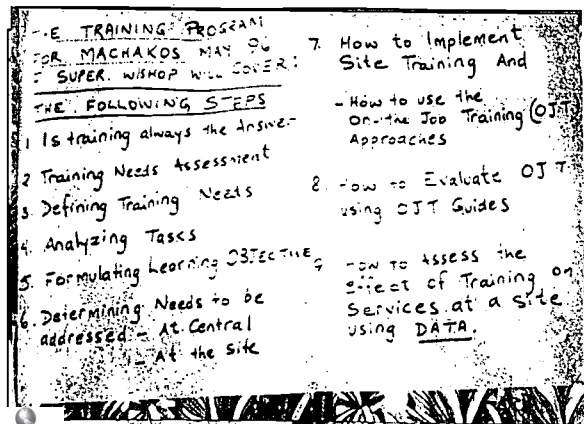 E TRAINING PROGRAM
FOR MACHAKOS MAY 96
SUPER. WSHOP WILL COVER:
THE FOLLOWING STEPS
1 Is training always the Answer
2 Training Needs Assessment
3. Defining Training Needs
4. Analyzing Tasks
5. Formulating Learning OBJECTIVE
6. Determining Needs to be
addressed - At Central
- At the Site
7. How to Implement
Site Training And
- How to use the
On-the Job Training (OJT)
Approaches
8. How to Evaluate OJT
using OJT Guides
9 How to Assess the
effect of Training on
Services at a site
using DATA.